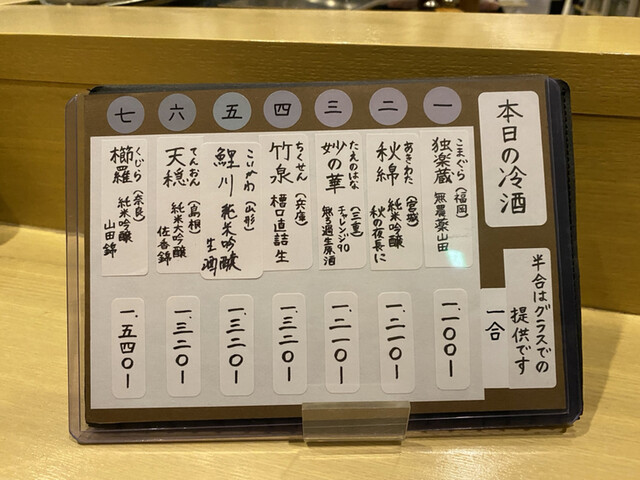 本日の冷酒
半合はグラスでの
提供です
一合
一
こまぐら
独楽蔵(福岡)
無農薬山田
一.一〇〇ー
二
あきわた
秋綿(宮城)
純米吟醸
秋の夜長に
一.二一〇ー
三
たえのはな
妙の華(三重)
チャレンジ90
無ろ過生原酒
一.二一〇ー
四
ちくせん
竹泉(兵庫)
槽口直詰生
一.三二〇ー
五
こいかわ
鯉川(山形)
純米吟醸
生酒
一.三二〇ー
六
てんおん
天穏(島根)
純米大吟醸
佐香錦
一.三二〇ー
七
くじら
櫛羅(奈良)
純米吟醸
山田錦
一.五四〇ー